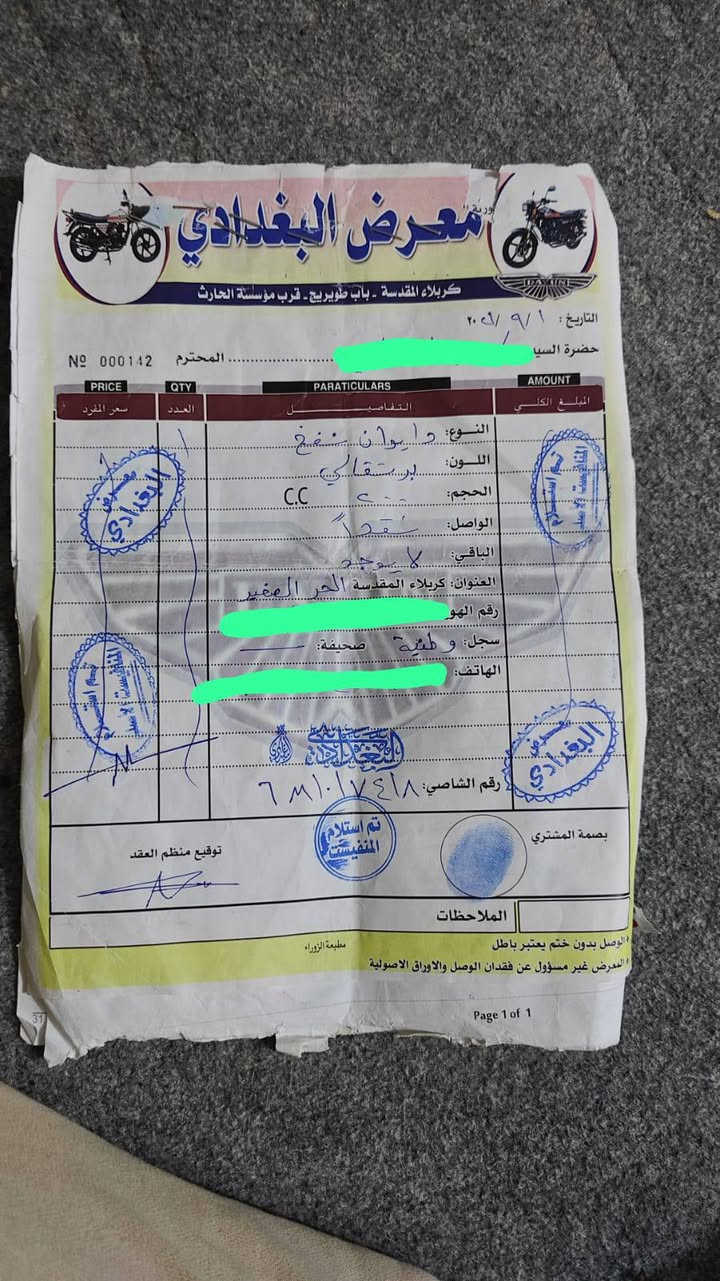 معرض البغدادي
DAYUN
كربلاء المقدسة - باب طويريج - قرب مؤسسة الحارث
التاريخ : ١ / ٩ / ٢٠
حضرة السيد
المحترم
Nº 000142
PRICE QTY PARATICULARS AMOUNT
سعر المفرد العدد التفاصيل المبلغ الكلي
النوع: دايون نفخ
اللون: برتقالي
الحجم: ٢٠٠ C.C
الواصل: نقداً
الباقي: لا يوجد
العنوان: كربلاء المقدسة الحر الصغير
رقم الهو
سجل: وطنية صحيفة:
الهاتف:
معرض البغدادي
تم استلام المنفيست الاصلي
تم استلام المنفيست الاصلي
معرض البغدادي
البغدادي
رقم الشاصي:
تم استلام المنفيست
بصمة المشتري
توقيع منظم العقد
الملاحظات
الوصل بدون ختم يعتبر باطل
المعرض غير مسؤول عن فقدان الوصل والاوراق الاصولية
مطبعة الزوراء
Page 1 of 1
31